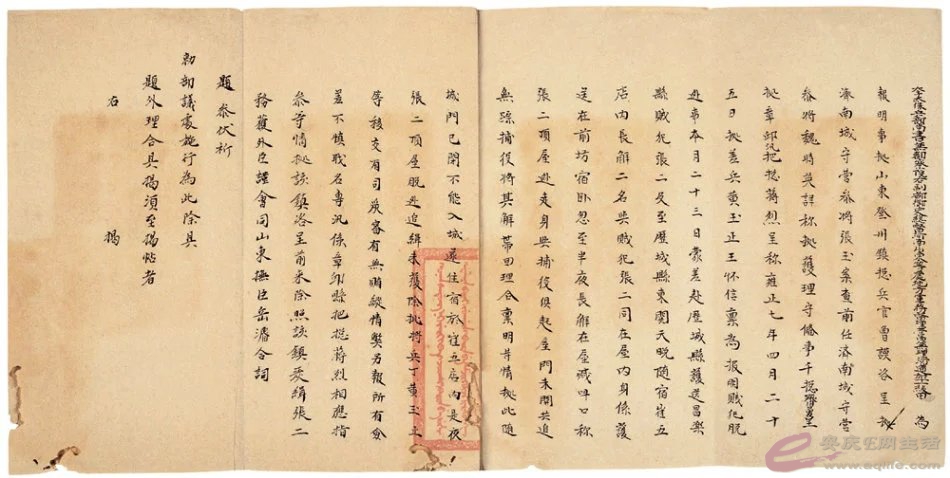 為
報明事據山東登州鎮總兵官曹謨咨呈據
濟南城守營參將張玉案查前任濟南城守營
參將魏時英詳稱據護理守備事千總呈
據章邱汛把總蔣烈呈稱雍正七年四月二十
五日據差兵黃玉正王懷信稟為報明賊犯脫
逃事本月二十三日蒙差赴歷城縣護送昌樂
縣賊犯張二及至歷城縣東關天晚隨宿崔五
店內長解二名與賊犯張二同在屋內身係護
送在前坊宿臥忽至半夜長解在屋喊叫口稱
張二頂屋逃走身與捕役俱起屋門未開共追
無踪捕役將其解田理合稟明等情據此隨
城門已閉不能入城遂住宿於崔五店內是夜
張二頂屋脫逃追緝未獲除批將兵丁黃玉正
等移交有司嚴審有無賄縱情弊另報所有僉
差不慎職名專汛係章邱縣把總蔣烈相應指
參等情據該鎮咨呈前來除照該鎮嚴緝張二
務獲外臣謹會同山東撫臣岳濬合詞
題參伏祈
勅部議處施行為此除具
題外理合具揭須至揭帖者
右揭
安庆E网生活